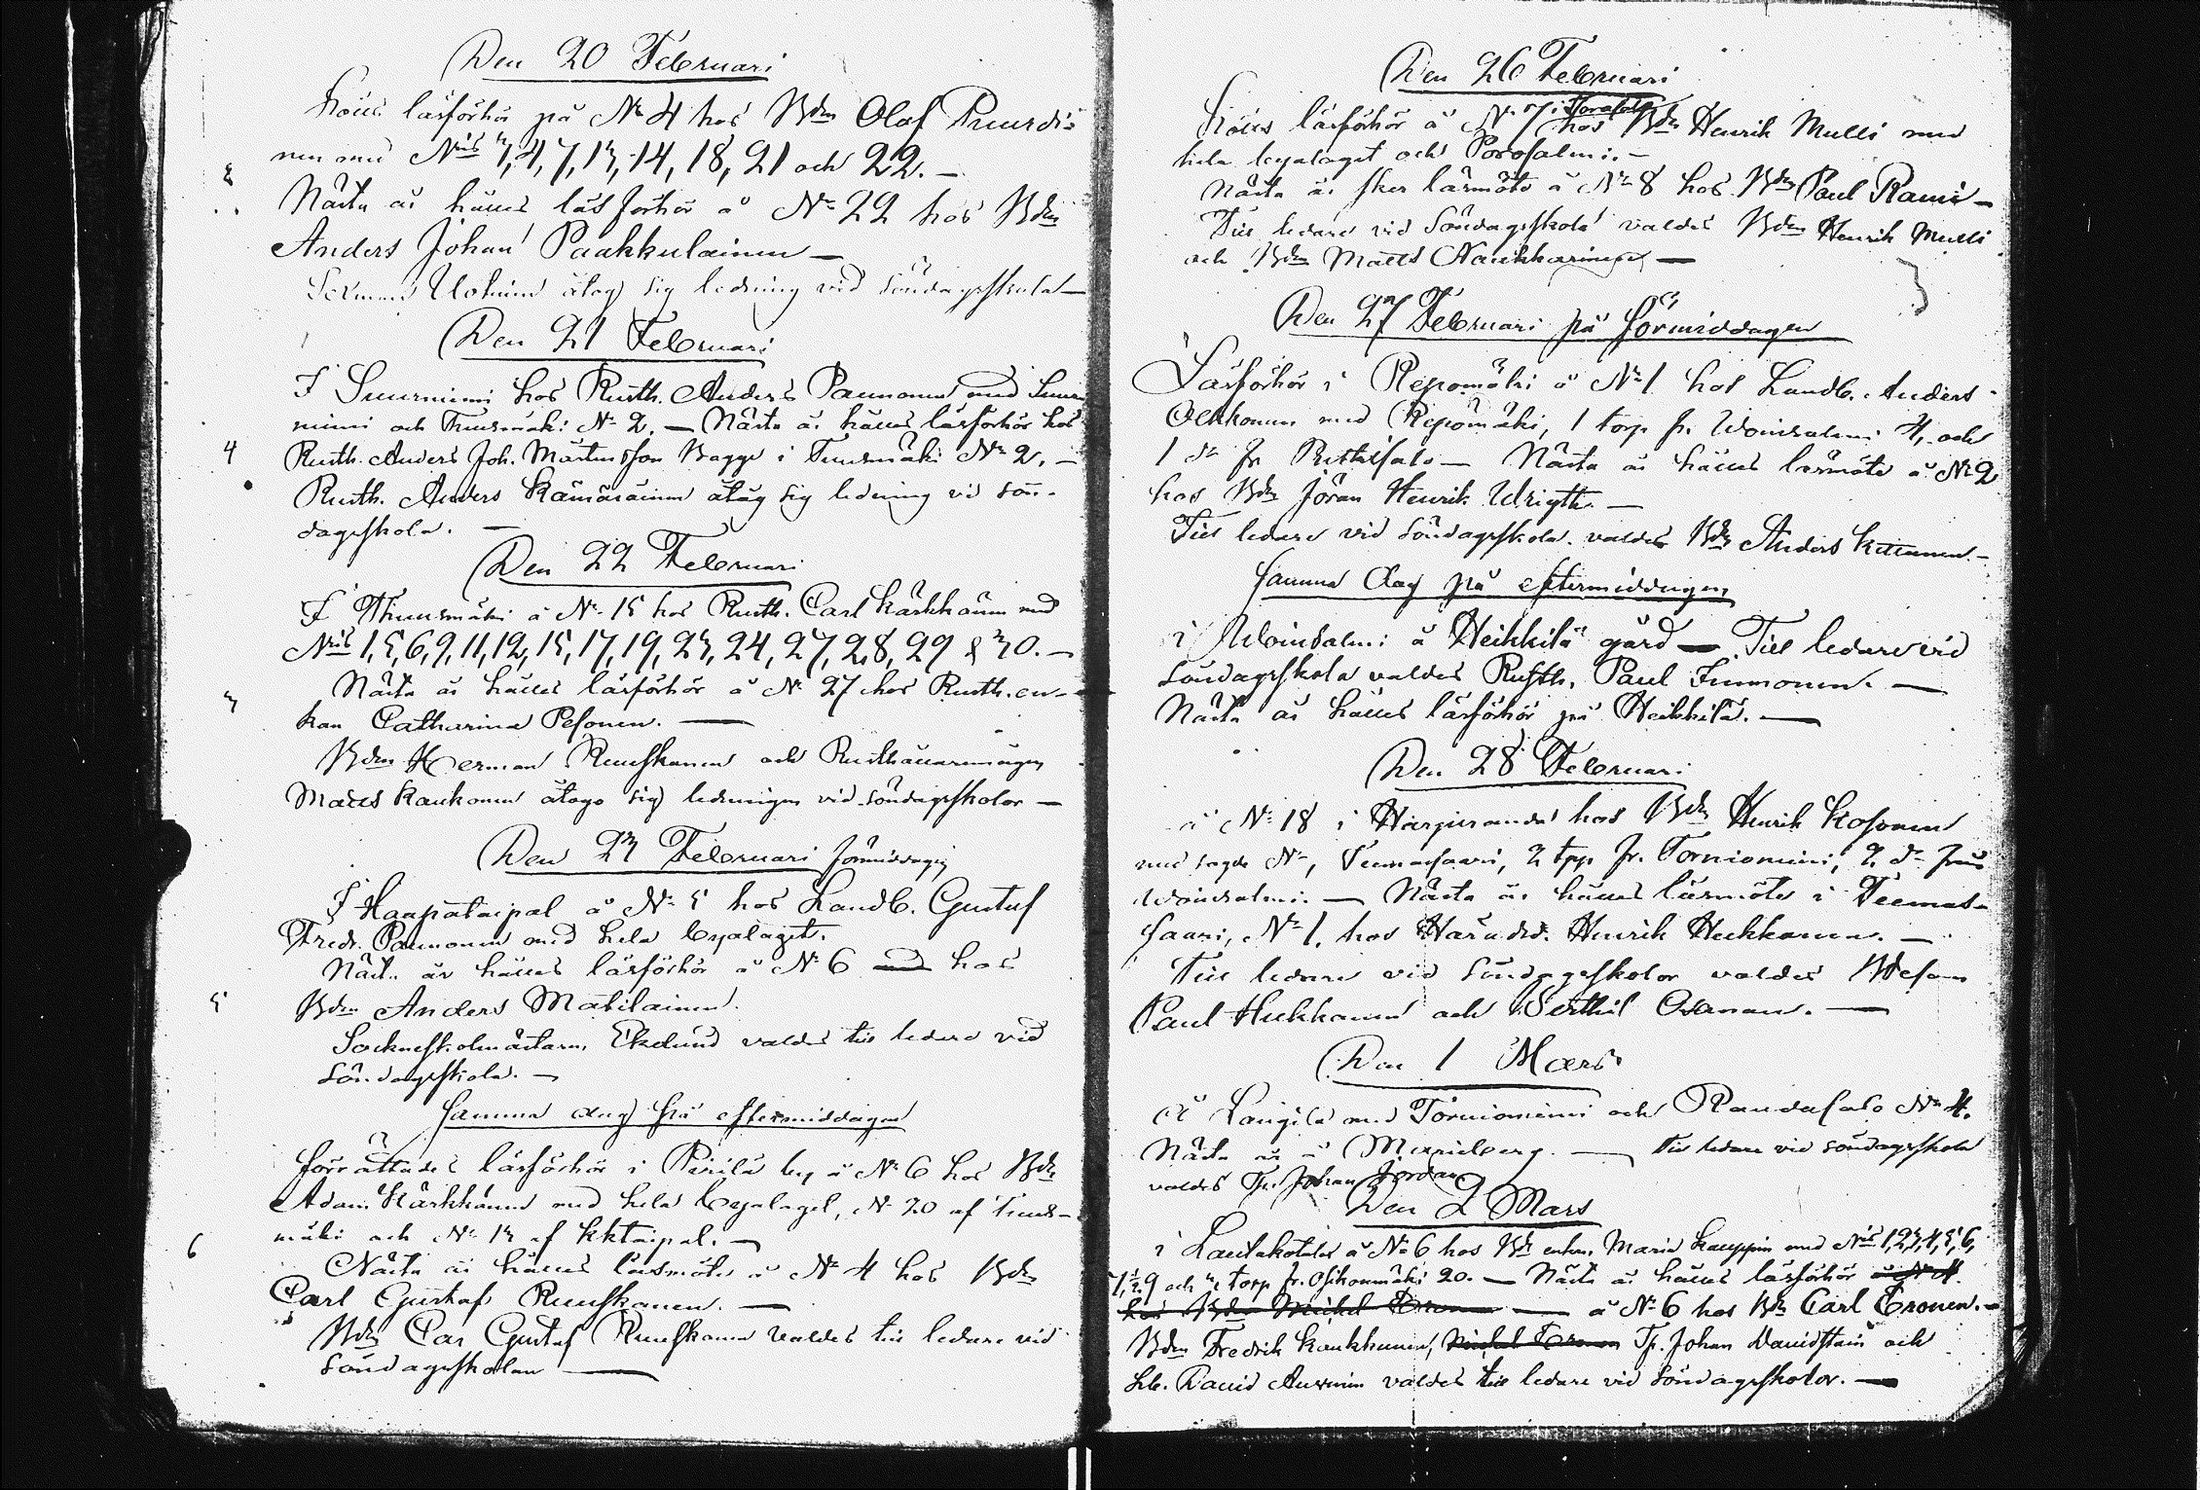 Den 20 Februari
hölls läsförhör på No 4 hos Bdn Olof Puurdi-
nen med Nris 3, 4, 7, 13, 14, 18, 21 och 22. —
3
Nästa år hålles läsförhör å No 22 hos Bdn
Anders Johan Paakkulainen —
åtog sig ledning vid söndagsskola —
Den 21 Februari
I Suurniemi hos Rusth. Anders Paunonen med Suur-
niemi och Tuusmäki No 2. — Nästa år hålles läsförhör hos
4
Rusth. Anders Joh. Mårtensson Bagge i Tuusmäki No 2. —
Rusth. Anders Kämäräinen åtog sig ledning vid sön-
dagsskola. —
Den 22 Februari
I Thuusmäki å No 15 hos Rusth. Carl Kärkkäinen med
Nris 1, 5, 6, 9, 11, 12, 15, 17, 19, 23, 24, 27, 28, 29 & 30. —
Nästa år hålles läsförhör å No 27 hos Rusth. en-
3
kan Catharina Pesonen. —
Bdn Herman Ruuskanen och Rusthållaremågen
Matts Kaukonen åtogo sig ledningen vid söndagsskolor —
Den 23 Februari förmiddagen
I Haapataipal å No 5 hos Landb. Gustaf
Fredr. Paunonen med hela byalaget.
Nästa år hålles läsförhör å No 6 med hos
5
Bdn Anders Matilainen.
Sockneskolmästaren Ekelund valdes till ledare vid
söndagsskola. —
samma dag på eftermiddagen
förrättades läsförhör i Pirilä by å No 6 hos Bdn
Adam Kärkkäinen med hela byalaget, No 20 af Tuus-
mäki och No 13 af Hktaipal. —
6
Nästa år hålles läsmöte å No 4 hos Bdn
Carl Gustaf Ruuskanen. —
Bdn Carl Gustaf Ruuskanen valdes till ledare vid
söndagsskolan —
Den 26 Februari
hölls läsförhör å No 7 hos Bdn Henrik Mulli med
hela byalaget och Porosalmi. —
Nästa år sker läsmöte å No 8 hos Bdn Paul Rami —
Till ledare vid söndagsskola valdes Bdn Henrik Mulli
och Bdn Matts Naukkarinen —
Den 27 Februari på förmiddagen
Läsförhör i Repomäki å No 1 hos Landb. Anders
Olkkonen med Repomäki, 1 torp fr. Woinsalmi 4, och
1 do fr — Nästa år hålles läsmöte å No 2
hos Bdn Jöran Henrik Wrigth. —
Till ledare vid söndagsskola valdes Bdn Anders Kettunen —
samma dag på eftermiddagen
i Woinsalmi å Heikkilä gård — Till ledare vid
söndagsskola valdes Rusth. Paul Immonen. —
Nästa år hålles läsförhör på Heikkilä. —
Den 28 Februari
å No 18 i Harjuranda hos Bdn Henrik Kosonen
med sagde No, Teemasaari, 2 tpp fr. Torniomimi, 2 do från
Woinsalmi. — Nästa år hålles läsmöte i Teema-
saari, No 1. hos Häradsd. Henrik Hukkanen. —
Till ledare vid söndagsskolor valdes
Paul Hukkanen och Berthil Oranen. —
Den 1 Mars
å Langila med Torniomimi och Randasalo No 4.
Nästa år å — till ledare vid söndagsskola
valdes Tp. Johan Jordan
Den 2 Mars
i Lautakotalas å No 6 hos Bd. enkan Maria Kauppin med Nris 1, 2, 3, 4, 5, 6,
7, 9 och torp fr. Osikonmäki 20. — Nästa år hålles läsförhör å No 4
hos Bdn Michel Tronen — å No 6 hos Bdn Carl Tronen. —
Bdn Fredrik Kaukkunen, Michel Tronen Tp. Johan Davidstain och
Lb. David Auvinin valdes till ledare vid söndagsskolor. —